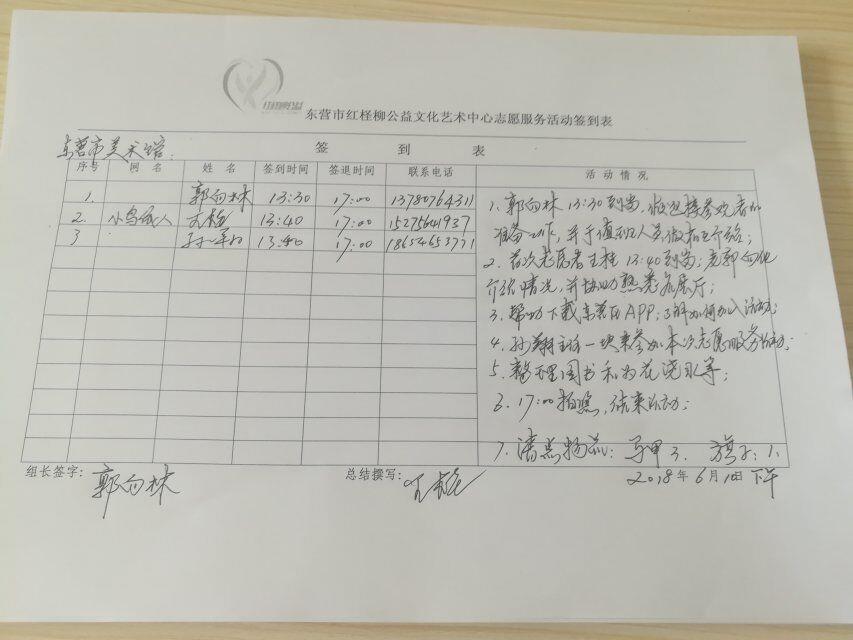 东营市红柽柳公益文化艺术中心志愿服务活动签到表
签 到 表
东营市美术馆：
序号 网 名 姓 名 签到时间 签退时间 联系电话 活 动 情 况
1. 郭向林 13:30 17:00 13780764311
2. 小鸟 人 王 13:40 17:00 15275641937
3 孙 13:40 17:00 18654653771
1、郭向林 13:30到岗，做迎接参观者的
准备工作，并于值班人员做相互介绍；
2、首次志愿者王 13:40到岗；郭向他
介绍情况，并协助熟悉各展厅；
3、帮助下载 APP；了解如何加入活动；
4、孙 一块来参加本次志愿服务活动；
5、整理图书和为花浇水等；
6、17:00拍照，结束活动；
7、清点物品：马甲3、旗子：1、
组长签字：郭向林 总结撰写：王
2018年6月1日下午